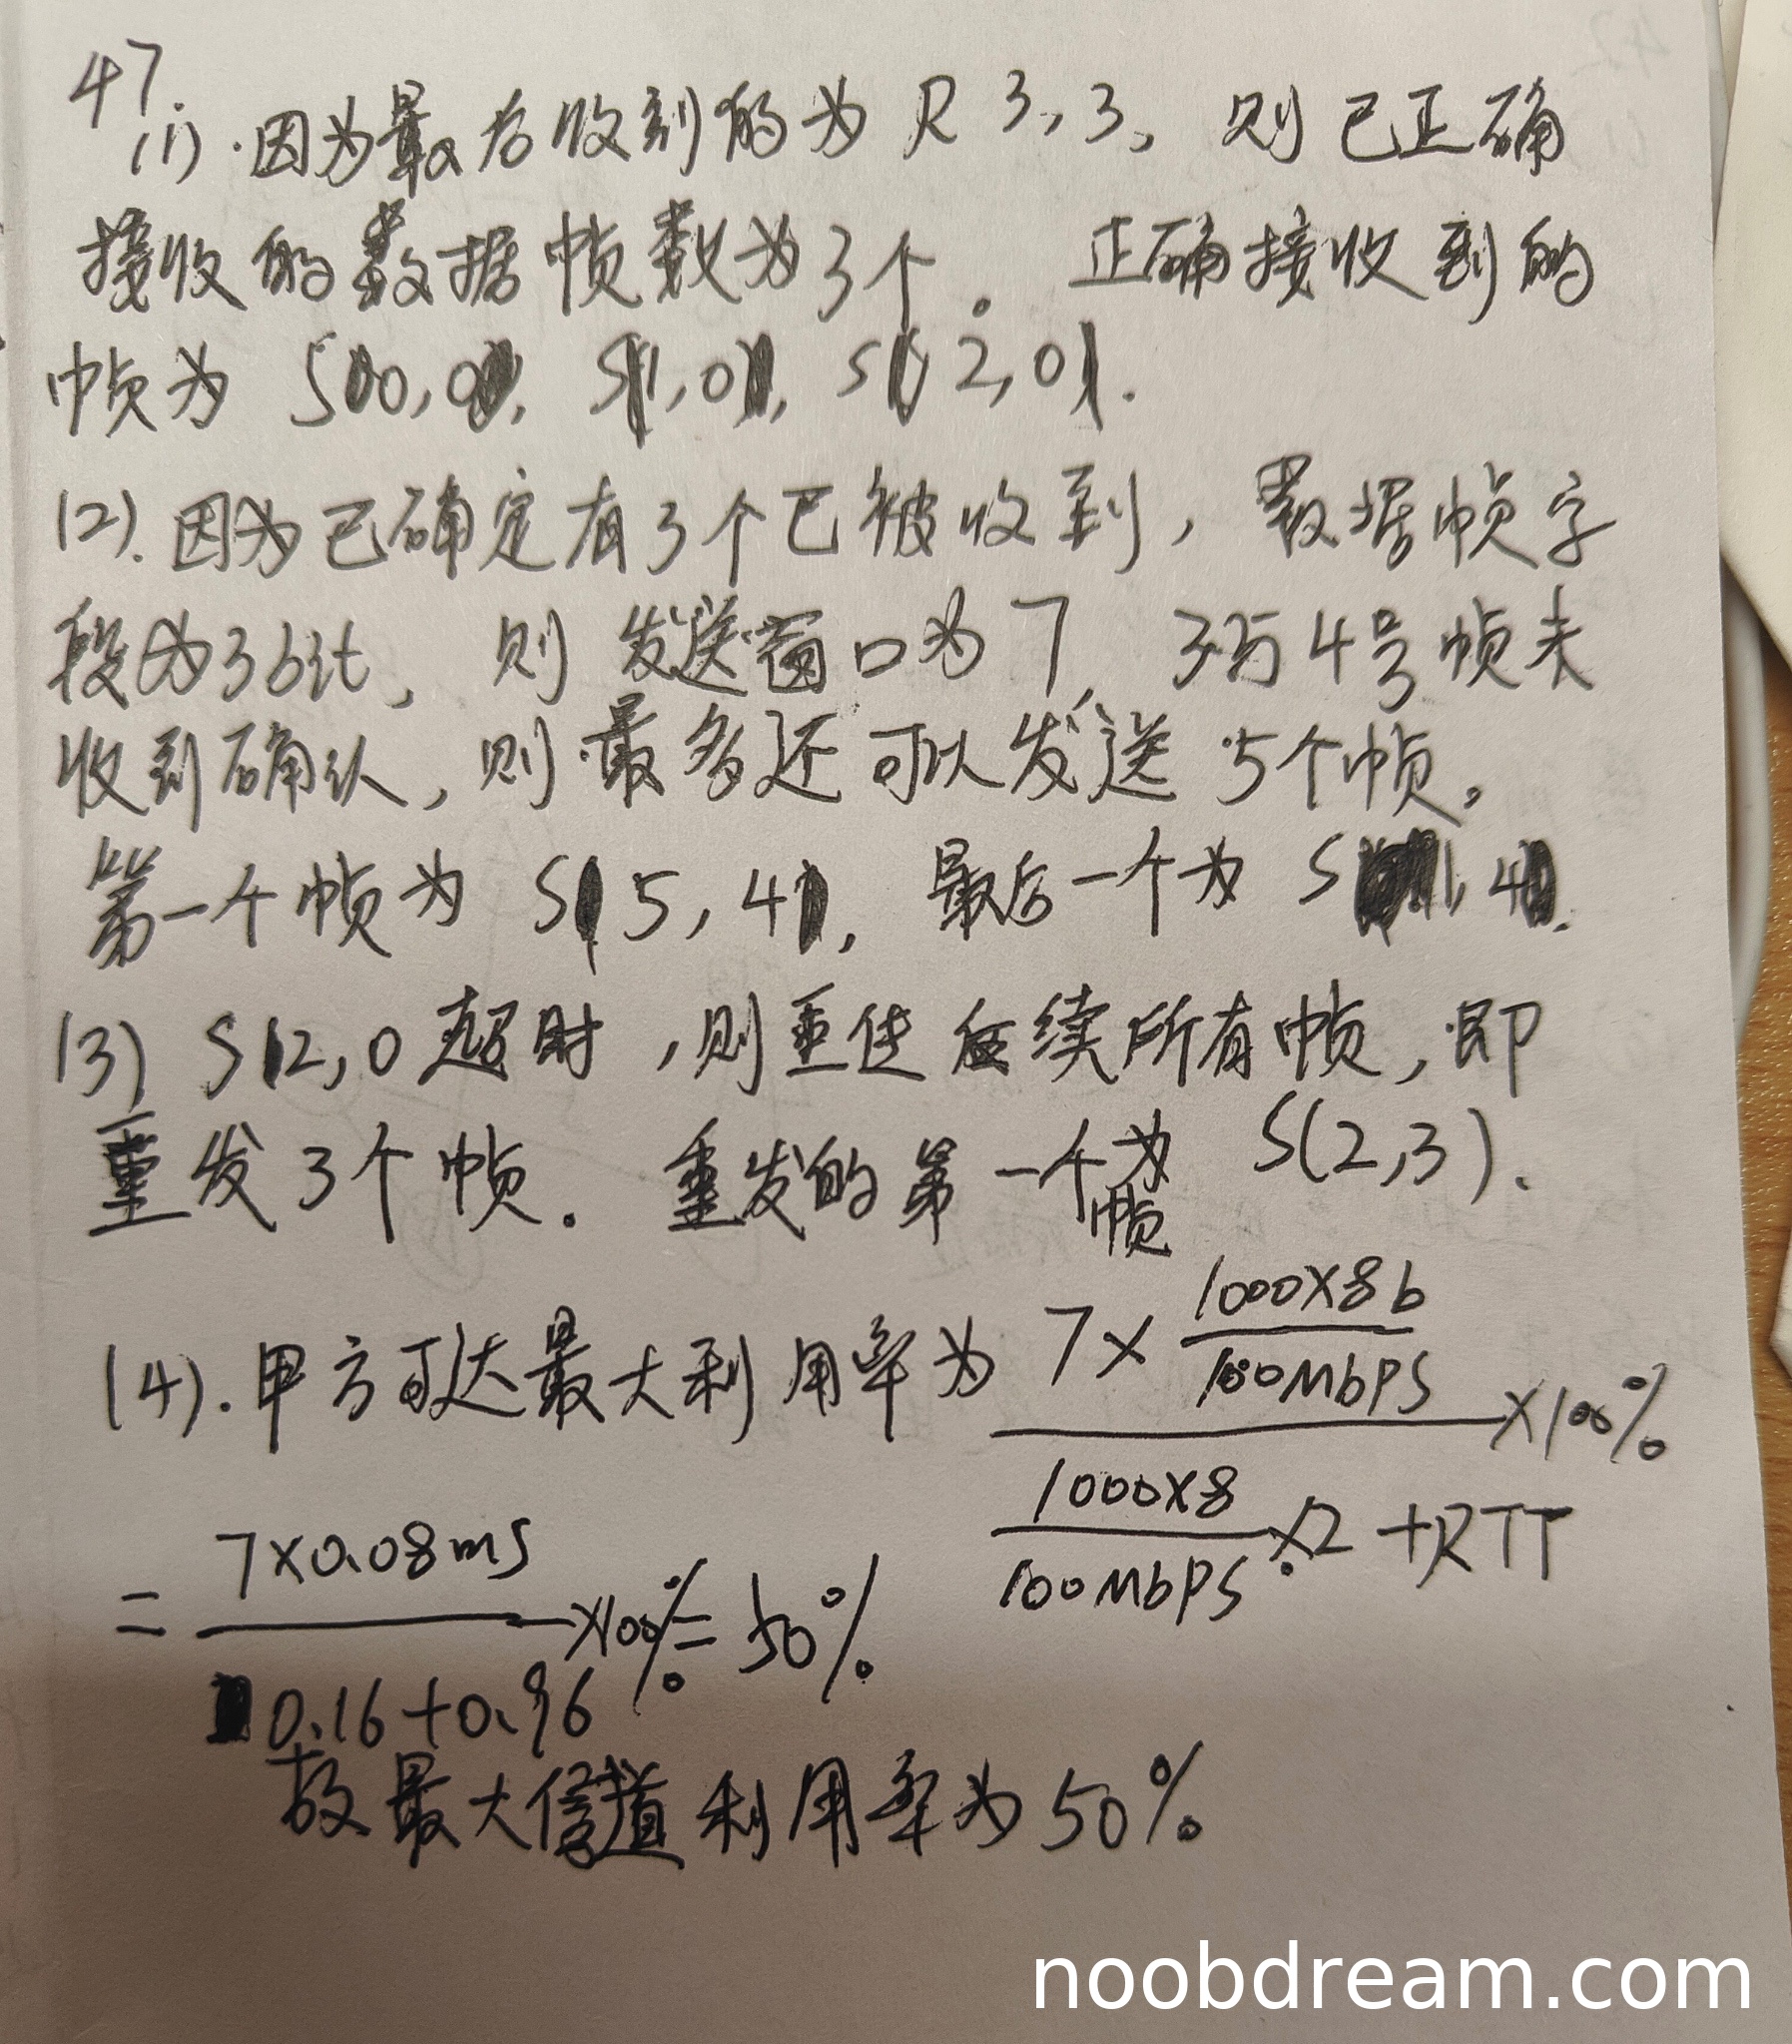 47.
(1).因为最后收到的为 R 3,3, 则已正确
接收的数据帧数为3个。 正确接收到的
帧为 S0,0, S1,0, S2,0.
(2).因为已确定有3个已被收到,数据帧字
段为3bit, 则 发送窗口为7, 3与4号帧未
收到确认,则最多还可以发送 5个帧。
第一个帧为 S 5,4, 最后一个为 S 1,4.
(3) S2,0超时,则重传后续所有帧,即
重发3个帧. 重发的第一个帧为 S(2,3).
(4).甲方可达最大利用率为 7× 1000×8b / 100Mbps / 1000×8 / 100Mbps ×2 +RTT ×100%
= 7×0.08ms / 0.16+0.96 ×100%= 50%
故最大信道利用率为50%
noobdream.com